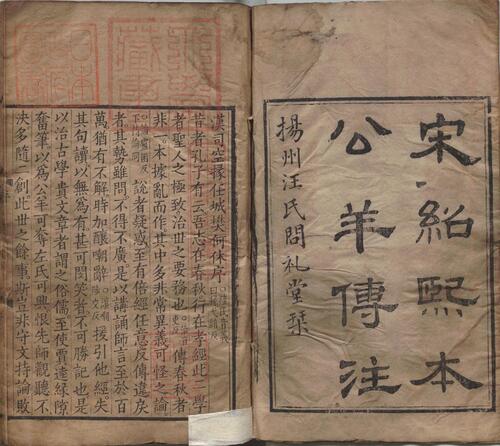 宋紹熙本
公羊傳注
揚州汪氏問礼堂栞
漢司空掾任城樊何休序
昔者孔子有云吾志在春秋行在孝經此二學
者聖人之極致治世之要務也傳春秋者
非一本據亂而作其中多非常異義可怪之論
說者疑惑至有倍經任意反傳違戾
者其勢雖問不得不廣是以講誦師言至於百
萬猶有不解時加釀嘲辭援引他經失
其句讀以無爲有甚可閔笑者不可勝記也是
以治古學貴文章者謂之俗儒至使賈逵緣隙
奮筆以爲公羊可奪左氏可興恨先師觀聽不
決多隨二創此世之餘事斯豈非守文持論敗